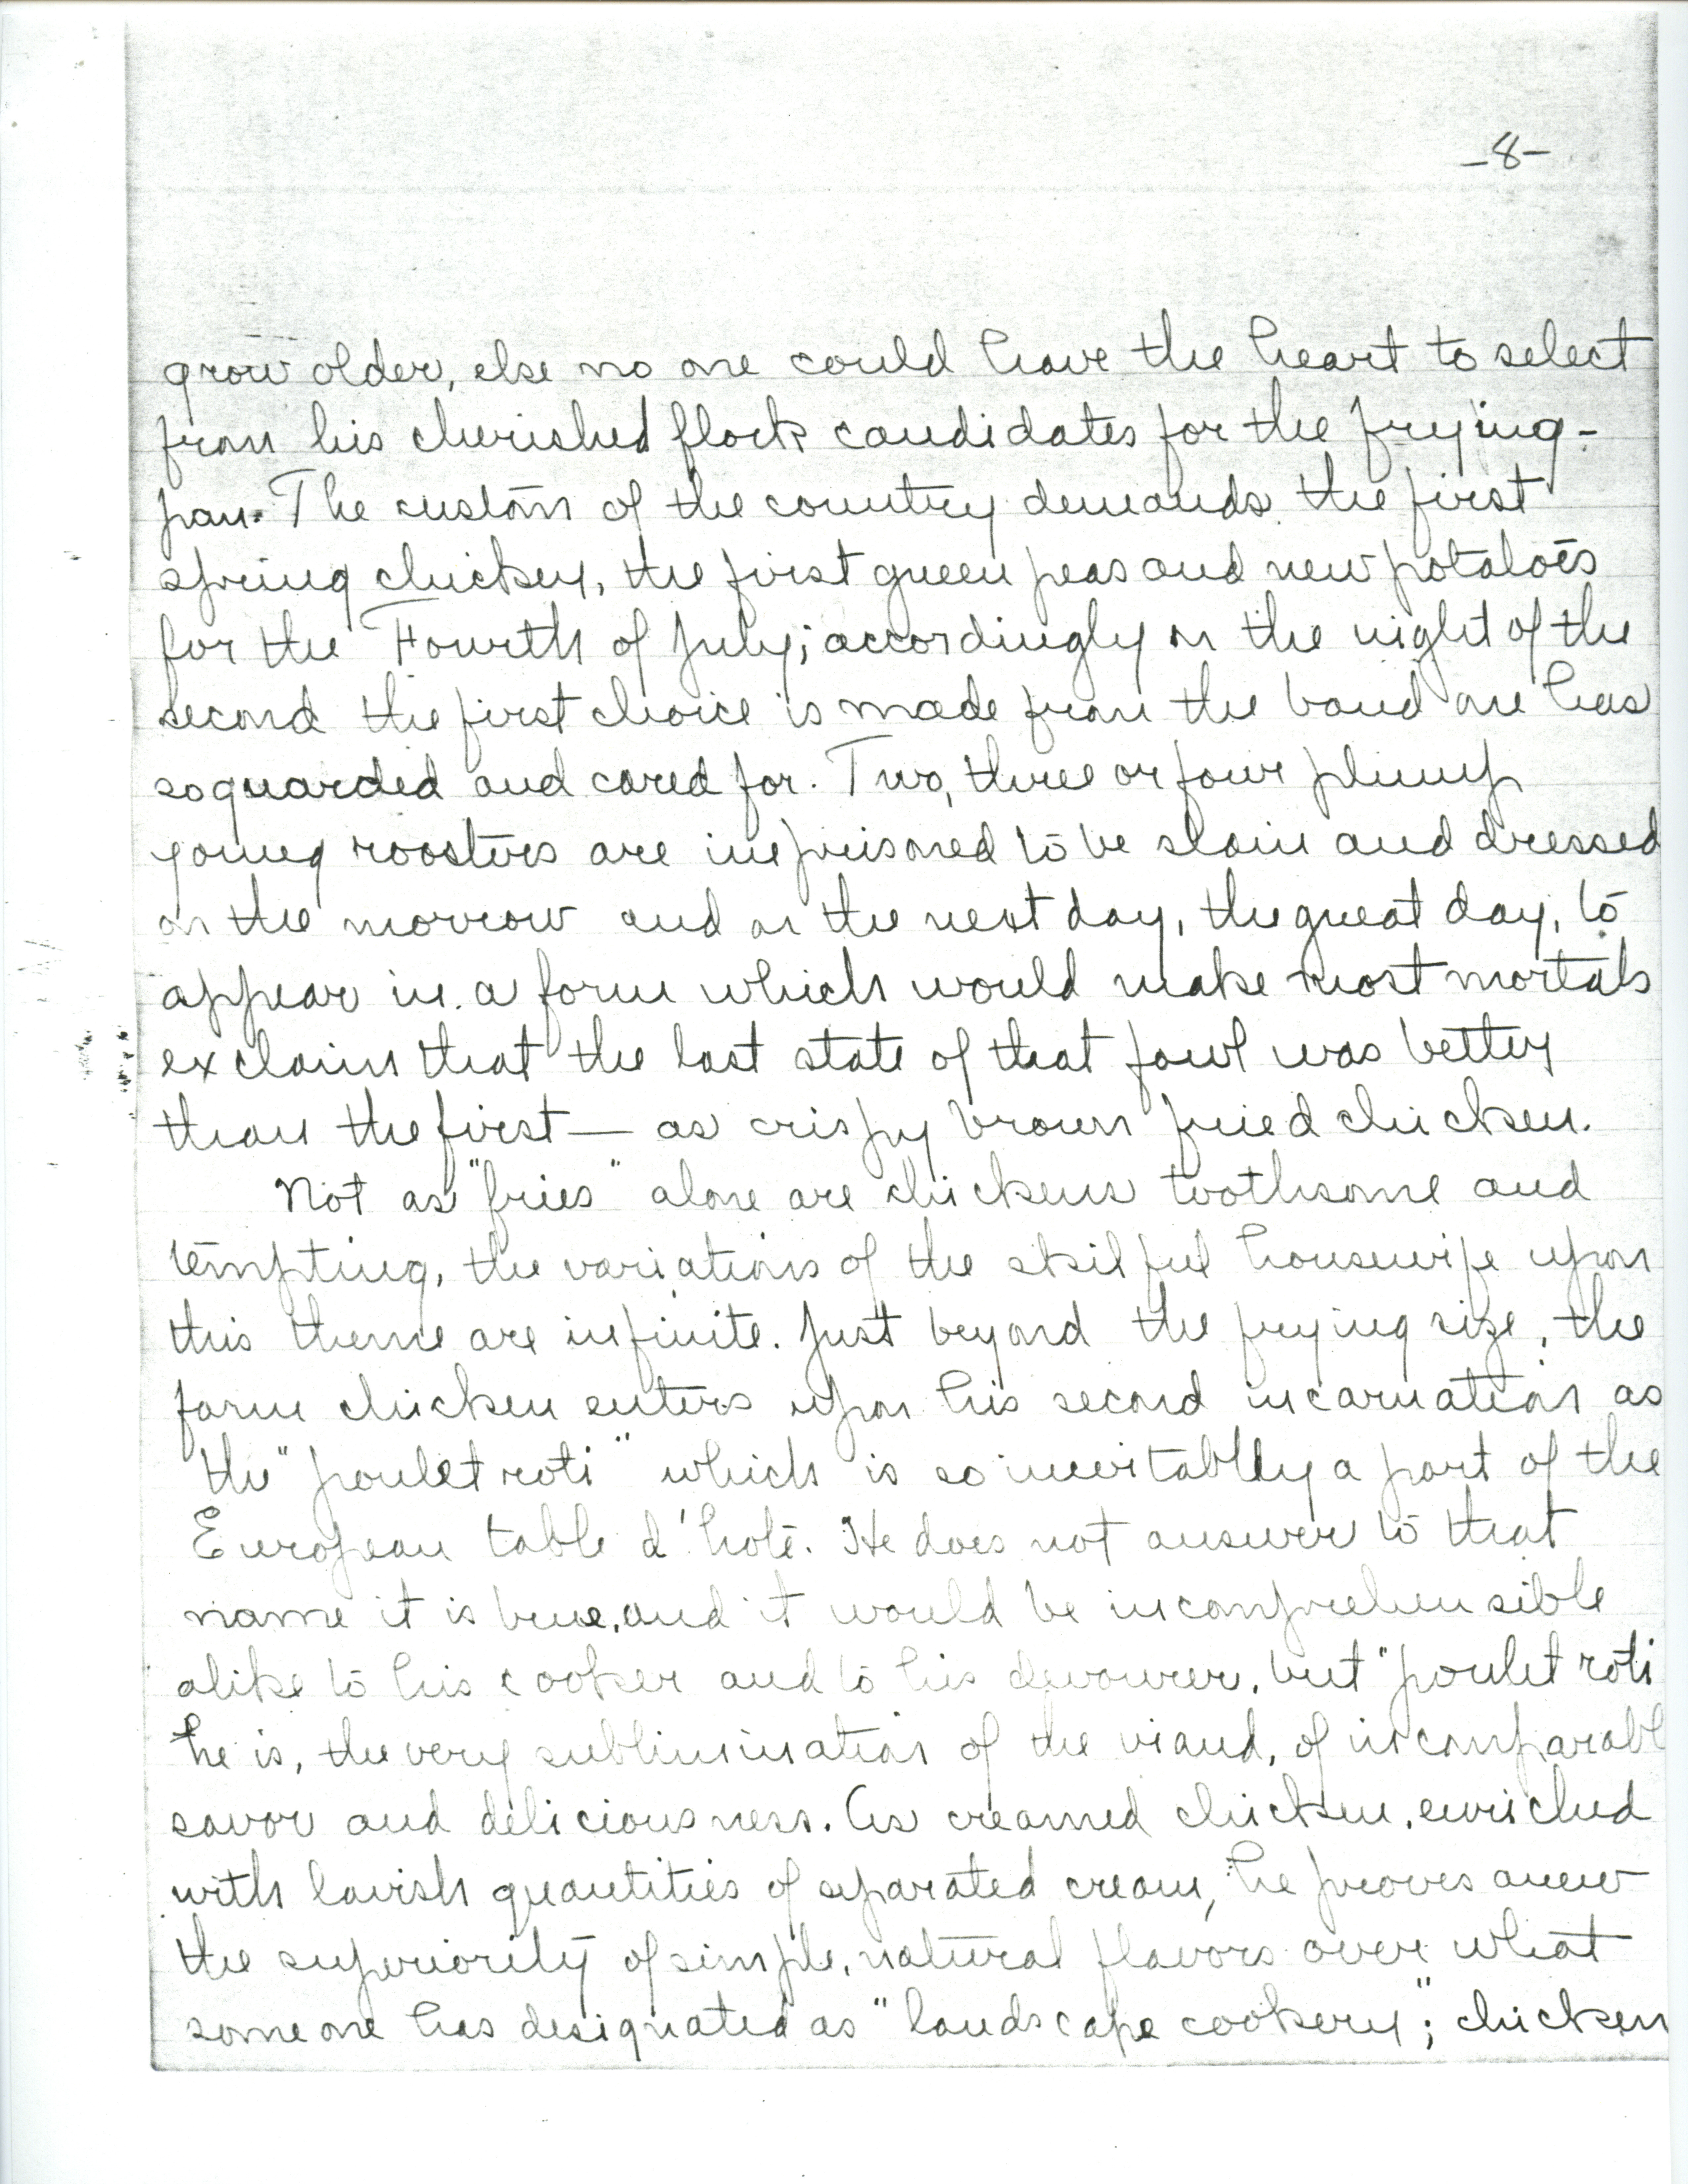 -8-
grow older, else no one could have the heart to select
from his cherished flock candidates for the frying-
pan. The custom of the country demands the first
spring chicken, the first green peas and new potatoes
for the Fourth of July; accordingly on the night of the
second the first choice is made from the band one has
so guarded and cared for. Two, three or four plump
young roosters are imprisoned to be slain and dressed
on the morrow and on the next day, the great day, to
appear in a form which would make most mortals
exclaim that the last state of that fowl was better
than the first — as crispy brown fried chicken.
Not as "fries" alone are chickens toothsome and
tempting, the variations of the skilful housewife upon
this theme are infinite. Just beyond the frying size, the
farm chicken enters upon his second incarnation as
the "poulet roti" which is so inevitably a part of the
European table d'hote. He does not answer to that
name it is true, and it would be incomprehensible
alike to his cooker and to his devourer, but "poulet roti
he is, the very sublimination of the viand, of incomparabl
savor and deliciousness. As creamed chicken, enriched
with lavish quantities of separated cream, he proves anew
the superiority of simple, natural flavors over what
some one has designated as "landscape cookery"; chicken